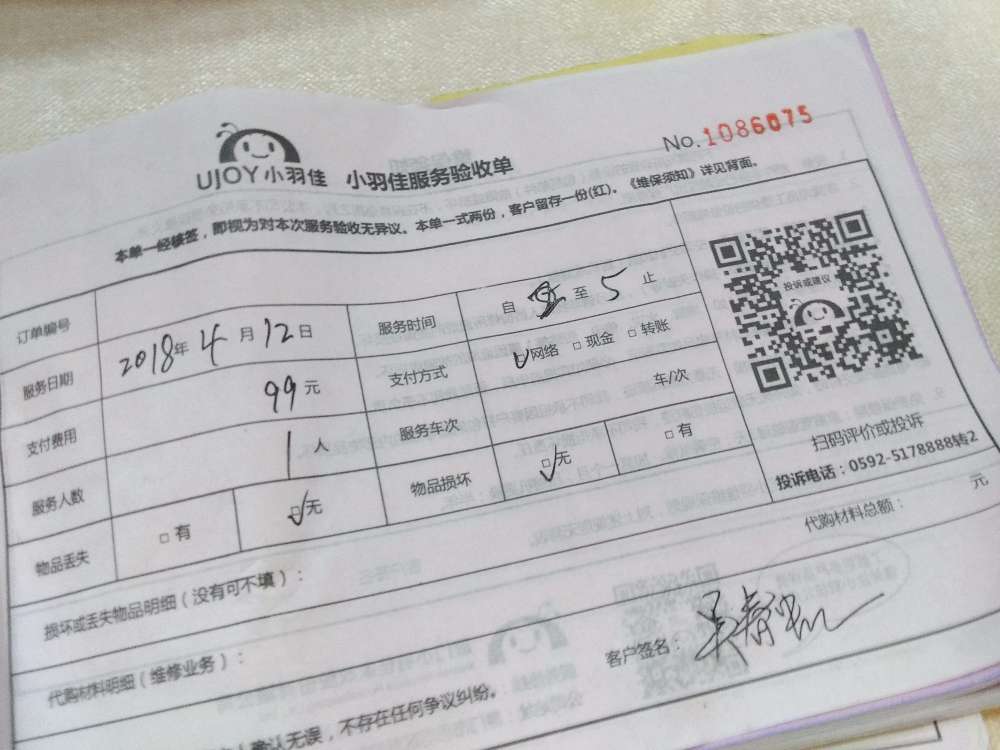 No.1086075
UJOY小羽佳 小羽佳服务验收单
本单一经核签，即视为对本次服务验收无异议。本单一式两份，客户留存一份(红)。《维保须知》详见背面。
订单编号 服务时间 自 至 5 止
服务日期 2018年 4 月 12 日 支付方式 网络 现金 转账
支付费用 99 元 服务车次 车/次
服务人数 1 人 物品损坏 无 有
物品丢失 有 无
投诉或建议
扫码评价或投诉
投诉电话：0592-5178888转2
损坏或丢失物品明细（没有可不填）：
代购材料总额： 元
代购材料明细（维修业务）：
客户签名：
确认无误，不存在任何争议纠纷。